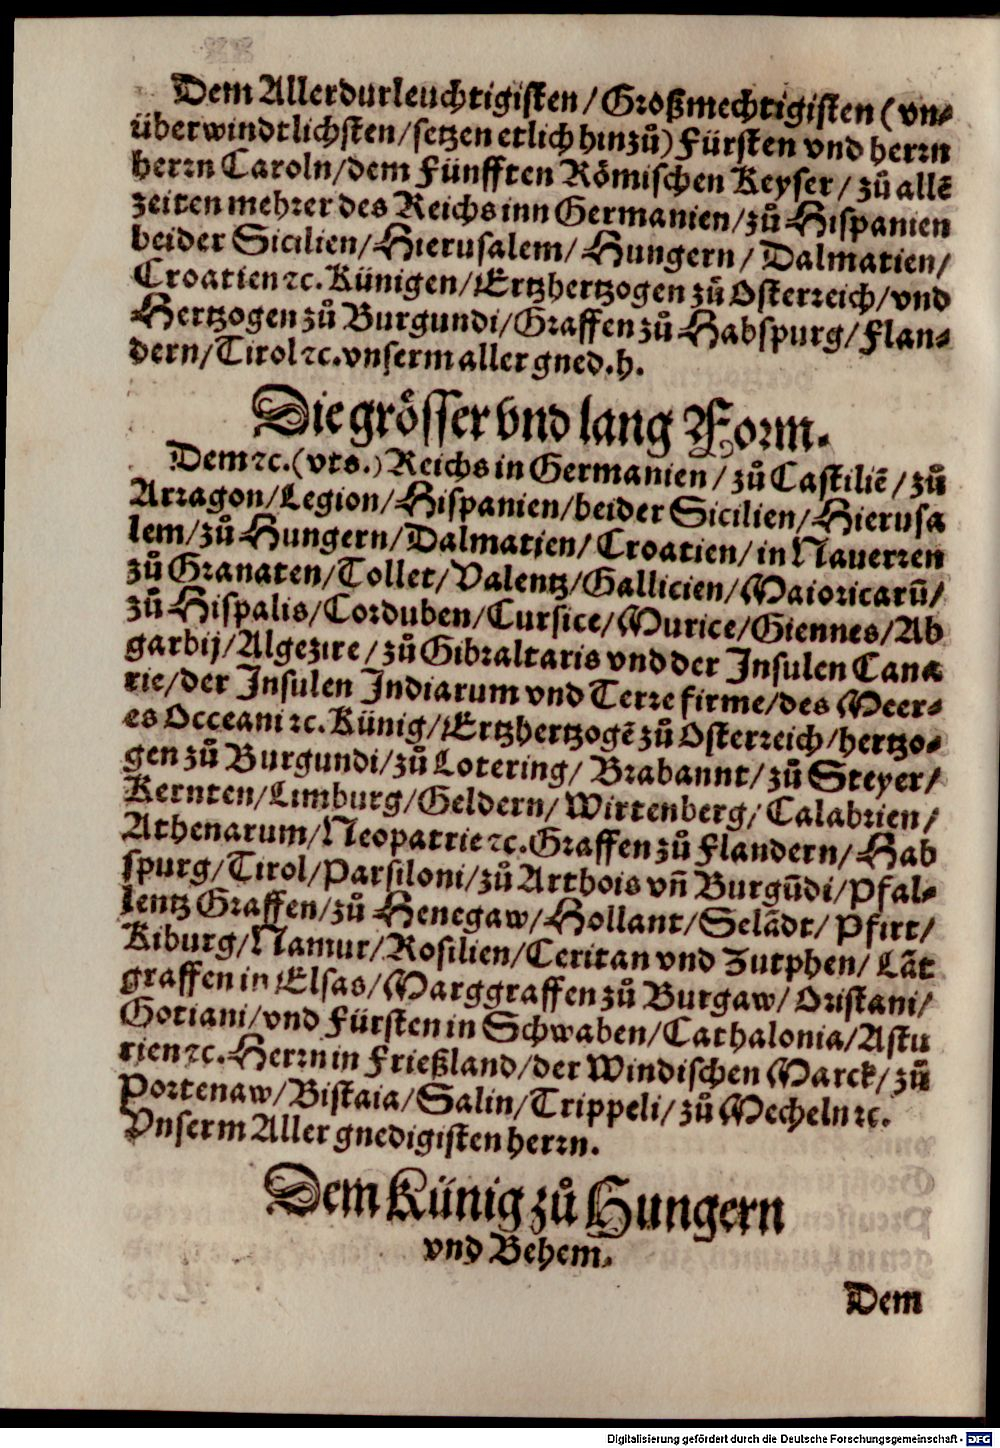 Dem Allerdurleuchtigisten/Großmechtigisten (vn⸗
überwindtlichsten/setzen etlich hinzů) Fürsten vnd herrn
herrn Caroln/dem Fünfften Römischen Keyser/zů allē
zeiten mehrer des Reichs inn Germanien/zů Hispanien
beider Sicilien/Hierusalem/Hungern/Dalmatien/
Croatien ꝛc. Künigen/Ertzhertzogen zů Osterreich/vnd
Hertzogen zů Burgundi/Graffen zů Habspurg/Flan⸗
dern/Tirol ꝛc. vnserm aller gned. h.
Die grösser vnd lang Form.
Dem ꝛc. (vts.) Reichs in Germanien/zů Castiliē/zů
Arragon/Legion/Hispanien/beider Sicilien/Hierusa
lem/zů Hungern/Dalmatien/Croatien/in Nauerren
zů Granaten/Tollet/Valentz/Gallicien/Maioricarū/
zů Hispalis/Corduben/Cursice/Murice/Giennes/Ab
garbij/Algezire/zů Gibraltaris vnd der Insulen Cana
rie/der Insulen Indiarum vnd Terre firme/des Meer⸗
es Occeani ꝛc. Künig/Ertzhertzogē zů Osterreich/hertzo⸗
gen zů Burgundi/zů Lotering/Brabannt/zů Steyer/
Kernten/Limburg/Geldern/Wirtenberg/Calabrien/
Athenarum/Neopatrie ꝛc. Graffen zů Flandern/Hab
spurg/Tirol/Parsiloni/zů Arthois vñ Burgūdi/Pfal⸗
lentz Graffen/zů Henegaw/Hollant/Selādt/Pfirt/
Kiburg/Namur/Rosilien/Ceritan vnd Zutphen/Lāt
graffen in Elsas/Marggraffen zů Burgaw/Oristani/
Gotiani/vnd Fürsten in Schwaben/Cathalonia/Astu
rien ꝛc. Herrn in Frießland/der Windischen Marck/zů
Portenaw/Biskaia/Salin/Trippeli/zů Mecheln ꝛc.
Vnserm Aller gnedigisten herrn.
Dem Künig zů Hungern
vnd Behem.
Dem
Digitalisierung gefördert durch die Deutsche Forschungsgemeinschaft - DFG